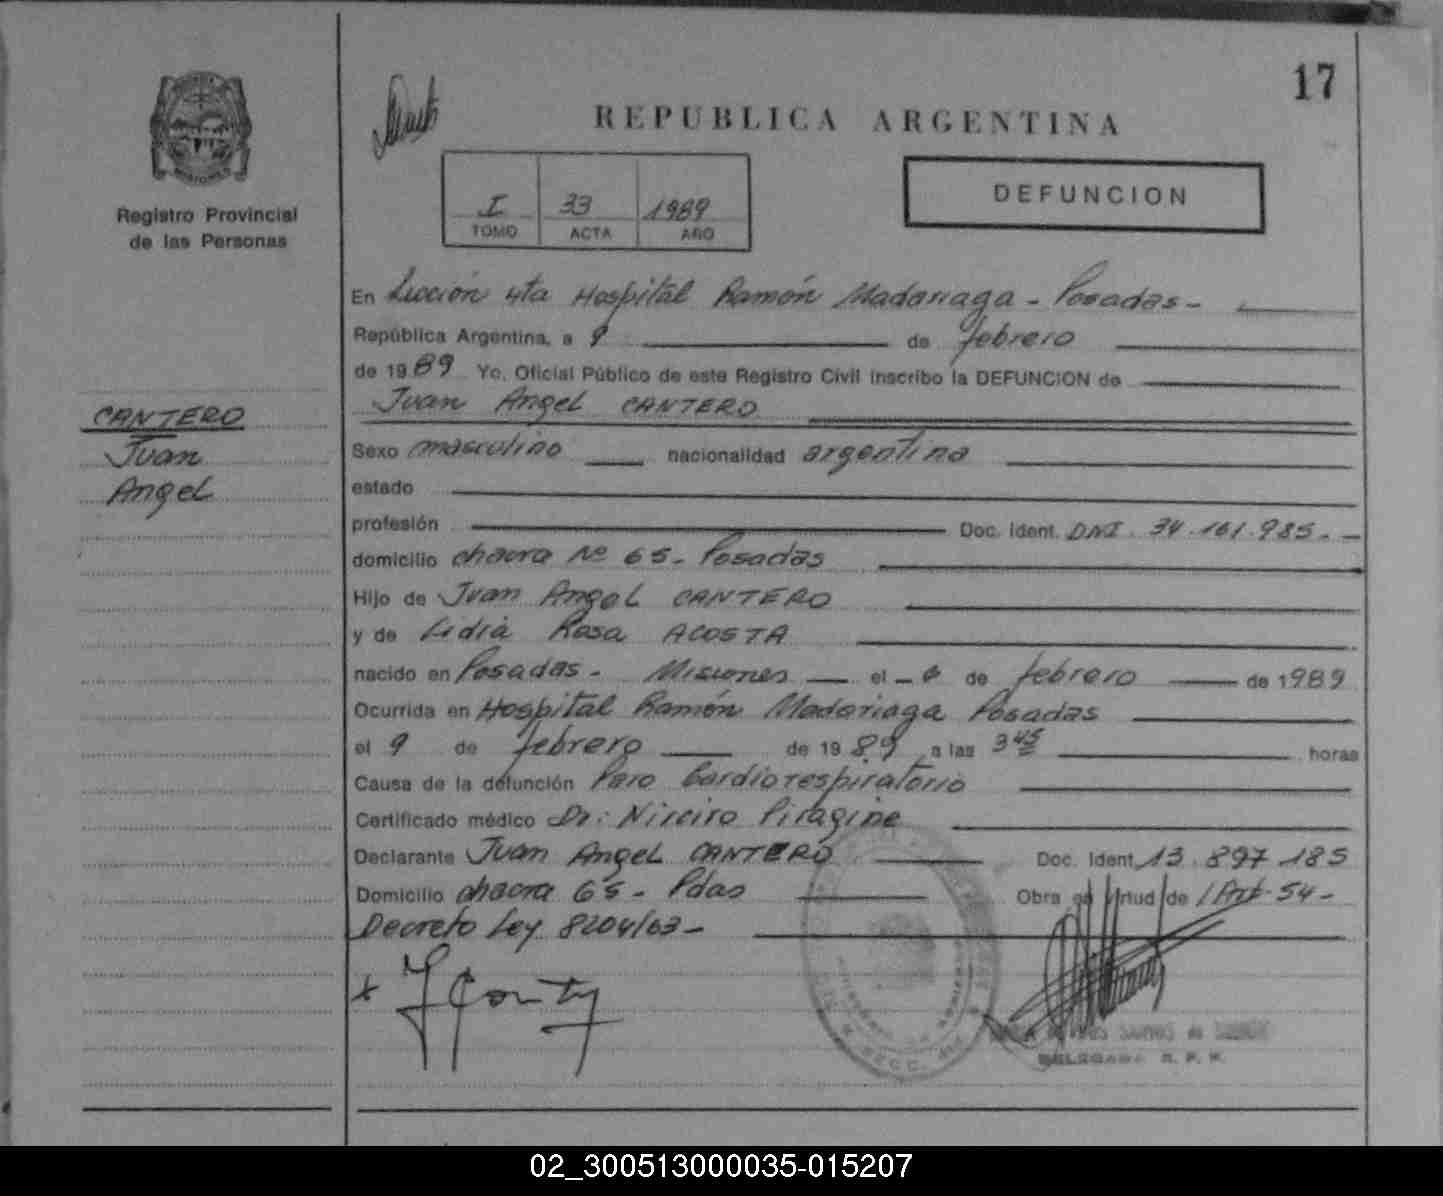 17
REPUBLICA ARGENTINA
Registro Provincial
de las Personas
I 33 1989
TOMO ACTA AÑO
DEFUNCION
En Sección 4ta Hospital Ramón Madariaga - Posadas -
República Argentina, a 9 de febrero
de 1989 Yo, Oficial Público de este Registro Civil inscribo la DEFUNCION de
Juan Angel CANTERO
CANTERO
Juan
Angel
Sexo masculino nacionalidad argentina
estado
profesión Doc. Ident. DNI. 34.161.985.-
domicilio chacra Nº 65 - Posadas
Hijo de Juan Angel CANTERO
y de Lidia Rosa ACOSTA
nacido en Posadas - Misiones el de febrero de 1989
Ocurrida en Hospital Ramón Madariaga Posadas
el 9 de febrero de 1989 a las 3 45 horas
Causa de la defunción Paro Cardiorespiratorio
Certificado médico Dr: Piragine
Declarante Juan Angel CANTERO Doc. Ident. 13.897.185
Domicilio chacra 65 - Pdas Obra en virtud de /Art. 54 -
Decreto Ley 8204/63 -
DELEGADA R. P. P.
02_300513000035-015207